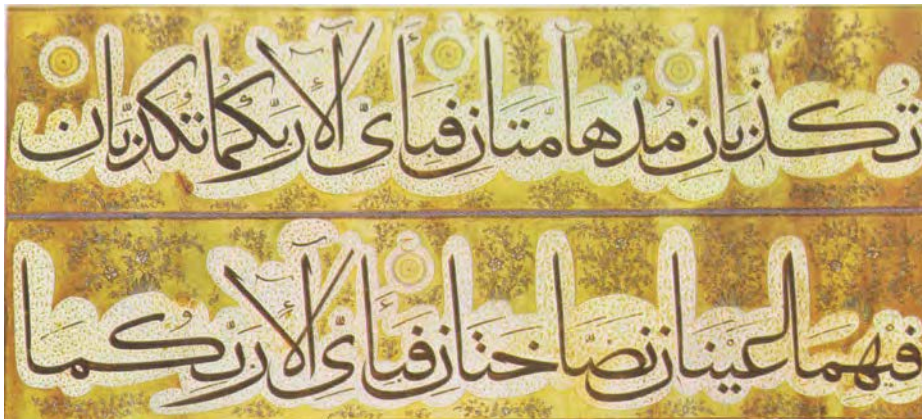 تُكَذِّبَانِ مُدْهَآمَّتَانِ فَبِأَىِّ آلَآءِ رَبِّكُمَا تُكَذِّبَانِ
فِيْهِمَا عَيْنَانِ نَضَّاخَتَانِ فَبِأَىِّ آلَآءِ رَبِّكُمَا